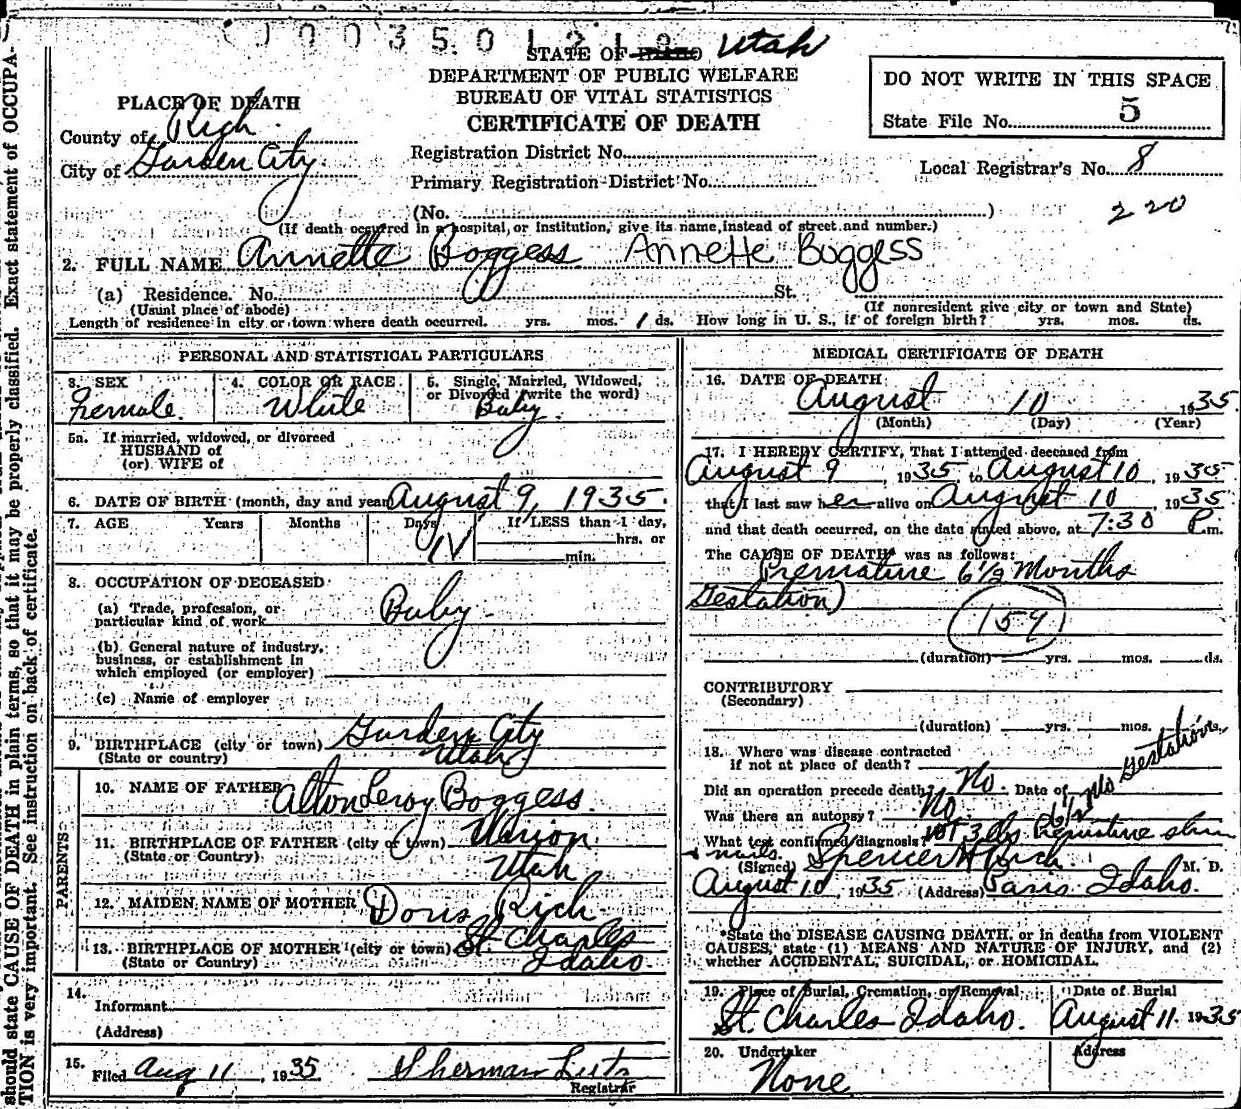 0035.01218
STATE OF IDAHO Utah
DEPARTMENT OF PUBLIC WELFARE
BUREAU OF VITAL STATISTICS
CERTIFICATE OF DEATH
DO NOT WRITE IN THIS SPACE
State File No. 5
PLACE OF DEATH
County of Rich
City of Garden City
Registration District No.
Primary Registration District No.
Local Registrar's No. 8
220
(No. )
(If death occurred in a hospital, or Institution, give its name, instead of street and number.)
2. FULL NAME Annette Boggess Annette Boggess
(a) Residence. No. St.
(Usual place of abode)
(If nonresident give city or town and State)
Length of residence in city or town where death occurred. yrs. mos. 1 ds. How long in U. S., if of foreign birth? yrs. mos. ds.
PERSONAL AND STATISTICAL PARTICULARS
3. SEX
Female.
4. COLOR OR RACE
White
5. Single, Married, Widowed, or Divorced (write the word)
Baby.
5a. If married, widowed, or divorced
HUSBAND of
(or) WIFE of
6. DATE OF BIRTH (month, day and year) August 9, 1935.
7. AGE Years Months Days If LESS than 1 day,
hrs. or
min.
8. OCCUPATION OF DECEASED
(a) Trade, profession, or
particular kind of work Baby
(b) General nature of industry,
business, or establishment in
which employed (or employer)
(c) Name of employer
9. BIRTHPLACE (city or town) Garden City
(State or country) Utah
PARENTS
10. NAME OF FATHER Alton Leroy Boggess.
11. BIRTHPLACE OF FATHER (city or town) Marion
(State or Country) Utah
12. MAIDEN NAME OF MOTHER Doris Rich
13. BIRTHPLACE OF MOTHER (city or town) St. Charles
(State or Country) Idaho.
14.
Informant
(Address)
15.
Filed Aug 11, 1935 Sherman
Registrar
MEDICAL CERTIFICATE OF DEATH
16. DATE OF DEATH
August 10 1935.
(Month) (Day) (Year)
17. I HEREBY CERTIFY, That I attended deceased from
August 9, 1935 to August 10, 1935
that I last saw her alive on August 10, 1935
and that death occurred, on the date stated above, at 7:30 P.m.
The CAUSE OF DEATH* was as follows:
Premature 6½ Months
Gestation)
159
(duration) yrs. mos. ds.
CONTRIBUTORY
(Secondary)
(duration) yrs. mos. ds.
18. Where was disease contracted
if not at place of death?
Did an operation precede death? No. Date of
Was there an autopsy? No. 6½ Mo Gestation
What test confirmed diagnosis? wt 3 lbs. Premature
(Signed) Spencer H Rich. M. D.
August 10, 1935 (Address) Paris Idaho.
*State the DISEASE CAUSING DEATH, or in deaths from VIOLENT
CAUSES, state (1) MEANS AND NATURE OF INJURY, and (2)
whether ACCIDENTAL, SUICIDAL, or HOMICIDAL.
19. Place of Burial, Cremation, or Removal
St. Charles Idaho.
Date of Burial
August 11. 1935
20. Undertaker
None
Address
should state CAUSE OF DEATH in plain terms, so that it may be properly classified. Exact statement of OCCUPA-
TION is very important. See instruction on back of certificate.